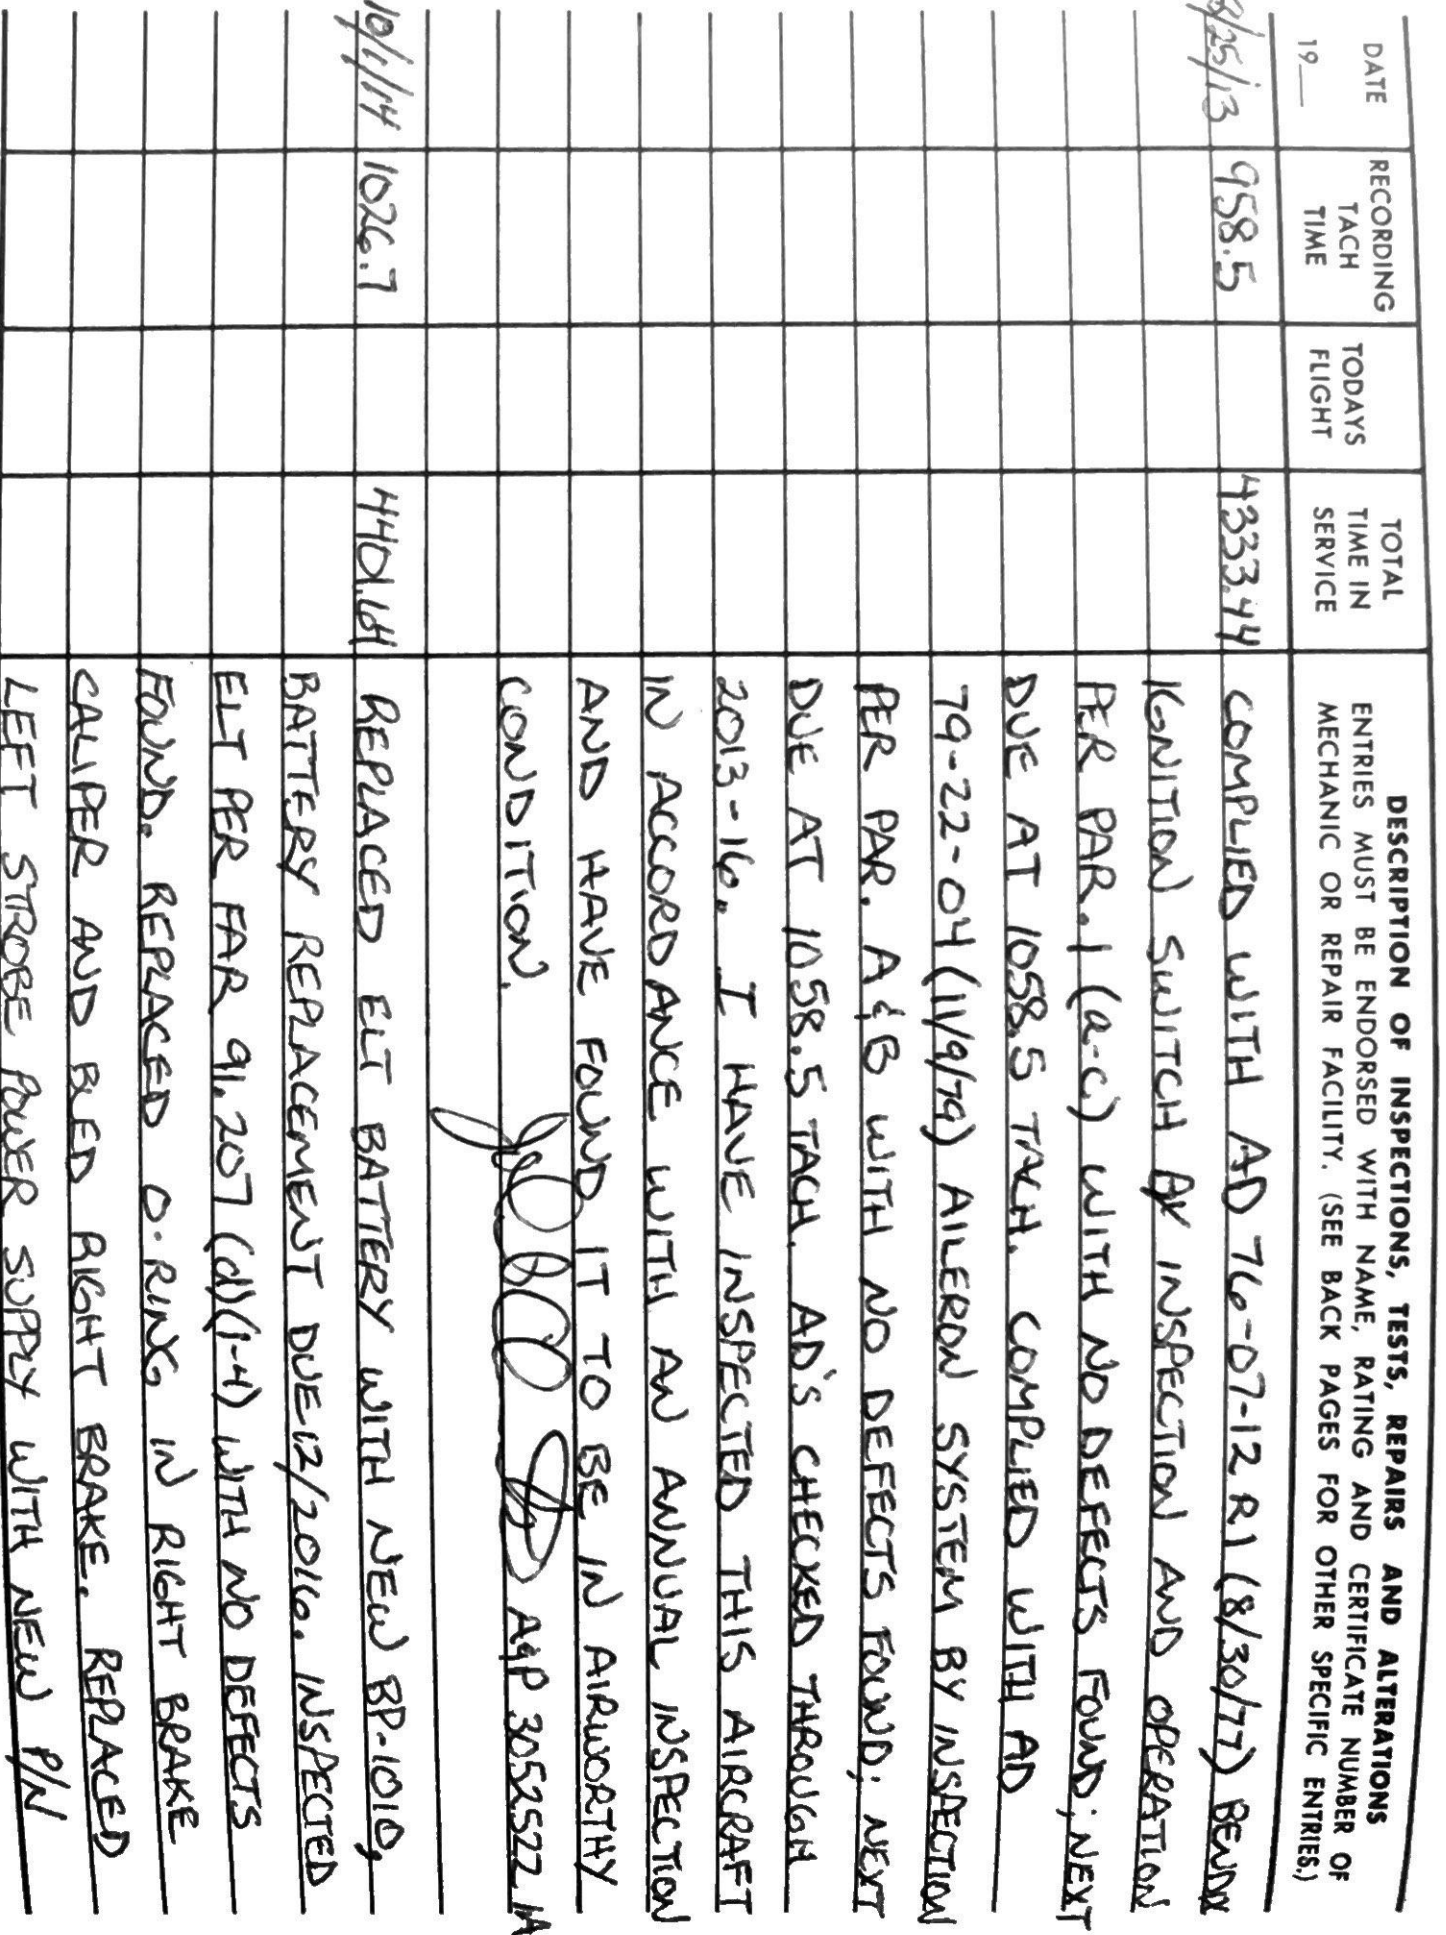 DATE
19__
RECORDING
TACH
TIME
TODAYS
FLIGHT
TOTAL
TIME IN
SERVICE
DESCRIPTION OF INSPECTIONS, TESTS, REPAIRS AND ALTERATIONS
ENTRIES MUST BE ENDORSED WITH NAME, RATING AND CERTIFICATE NUMBER OF
MECHANIC OR REPAIR FACILITY. (SEE BACK PAGES FOR OTHER SPECIFIC ENTRIES.)
8/25/13 958.5 4333.44 COMPLIED WITH AD 76-07-12 R1 (8/30/77) BENDIX
IGNITION SWITCH BY INSPECTION AND OPERATION
PER PAR. 1 (a-c) WITH NO DEFECTS FOUND; NEXT
DUE AT 1058.5 TACH. COMPLIED WITH AD
79-22-04 (11/9/79) AILERON SYSTEM BY INSPECTION
PER PAR. A & B WITH NO DEFECTS FOUND; NEXT
DUE AT 1058.5 TACH. AD'S CHECKED THROUGH
2013-16. I HAVE INSPECTED THIS AIRCRAFT
IN ACCORDANCE WITH AN ANNUAL INSPECTION
AND HAVE FOUND IT TO BE IN AIRWORTHY
CONDITION. A&P 3052522 IA
10/1/14 1026.7 4401.64 REPLACED ELT BATTERY WITH NEW BP-1010,
BATTERY REPLACEMENT DUE 12/2016. INSPECTED
ELT PER FAR 91.207 (d)(1-4) WITH NO DEFECTS
FOUND. REPLACED O-RING IN RIGHT BRAKE
CALIPER AND BLED RIGHT BRAKE. REPLACED
LEFT STROBE POWER SUPPLY WITH NEW P/N